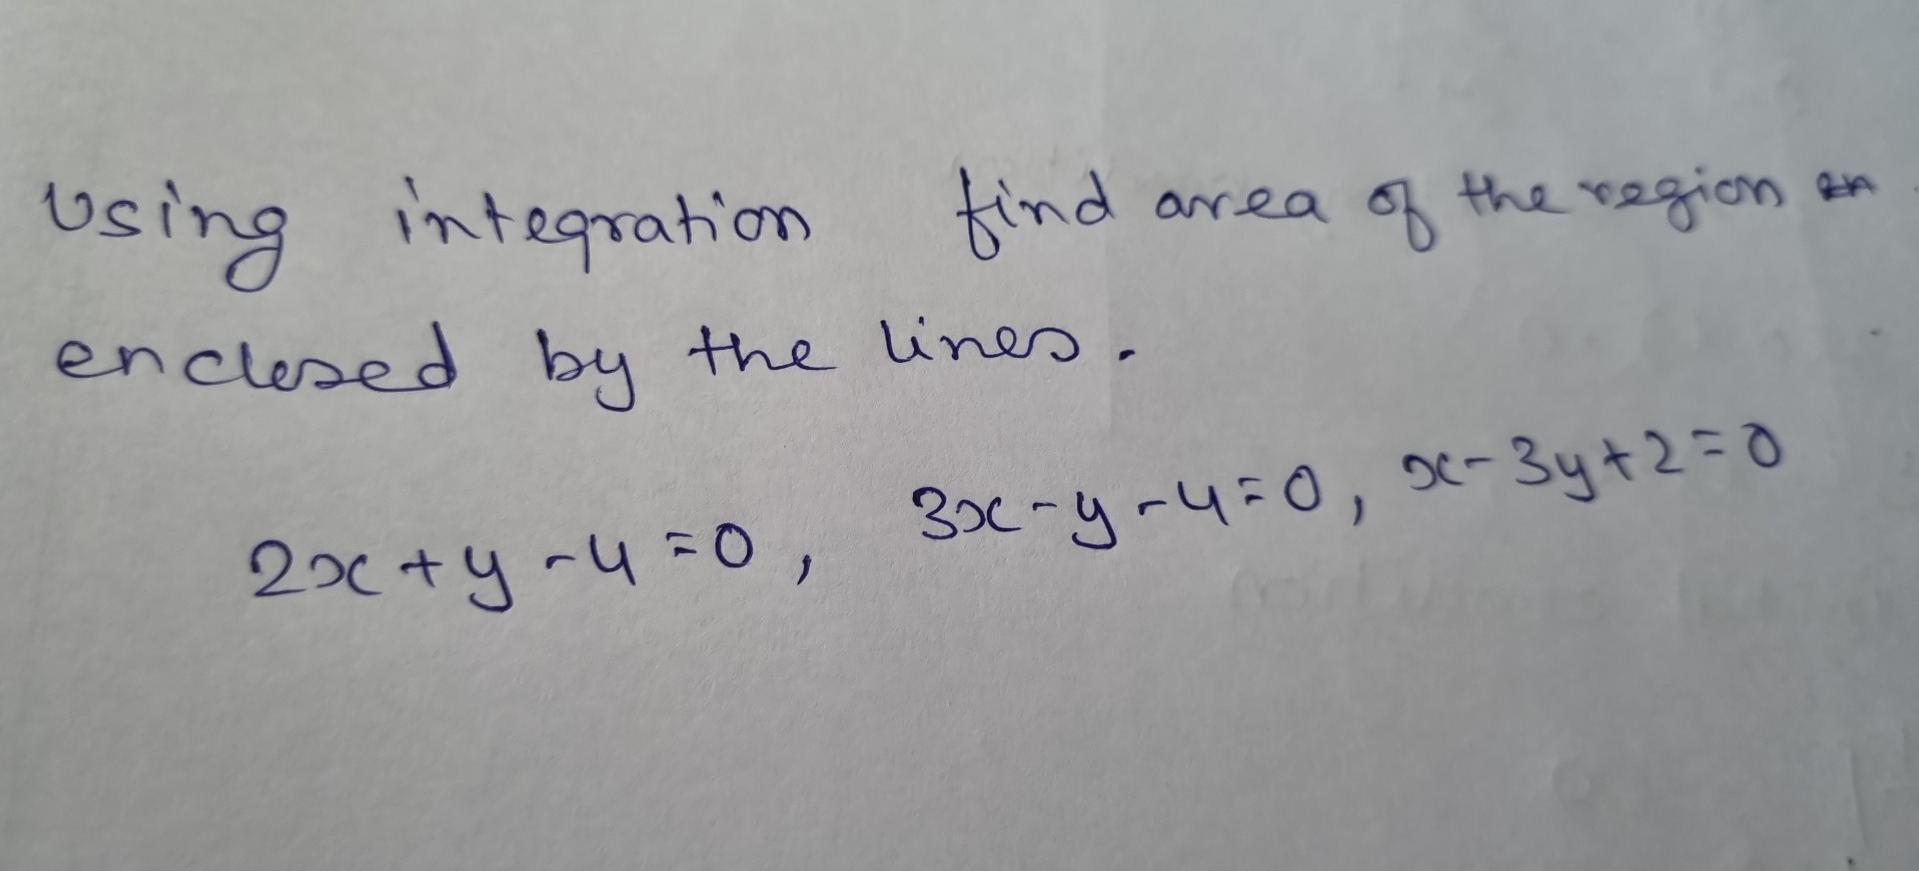 Using integration find area of the region
enclosed by the lines.
2x + y - 4 = 0, 3x - y - 4 = 0, x - 3y + 2 = 0